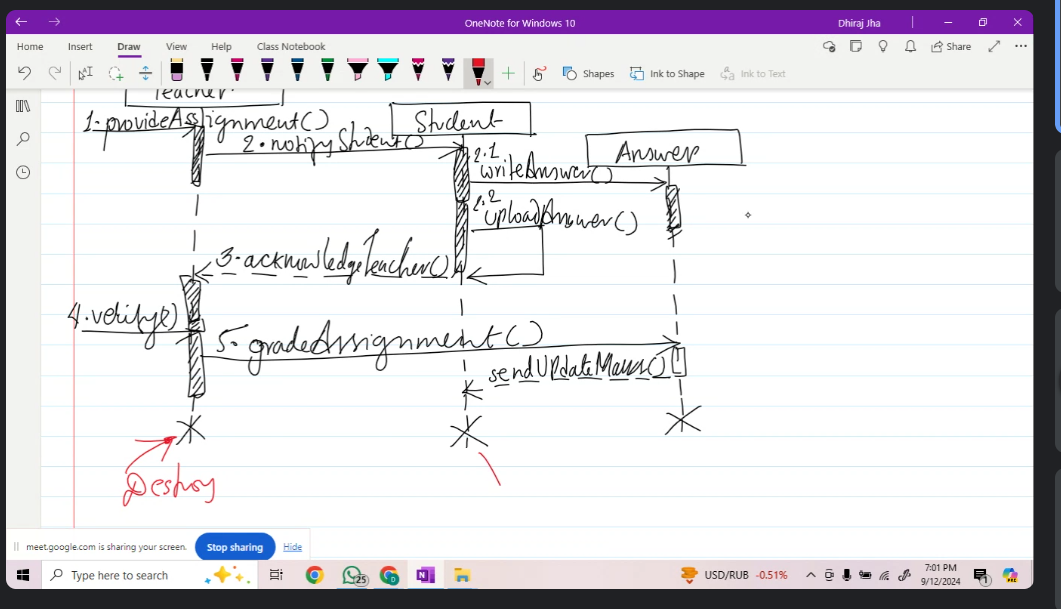 OneNote for Windows 10
Dhiraj Jha
Home Insert Draw View Help Class Notebook
Share
Shapes
Ink to Shape
Ink to Text
Teacher
1. provideAssignment()
Student
2. notifyStudent()
Answer
2.1
writeAnswer()
2.2
uploadAnswer()
3. acknowledgeTeacher()
4. verify()
5. gradeAssignment()
Destroy
meet.google.com is sharing your screen.
Stop sharing
Hide
Type here to search
25
USD/RUB -0.51%
7:01 PM
9/12/2024
1
PRE